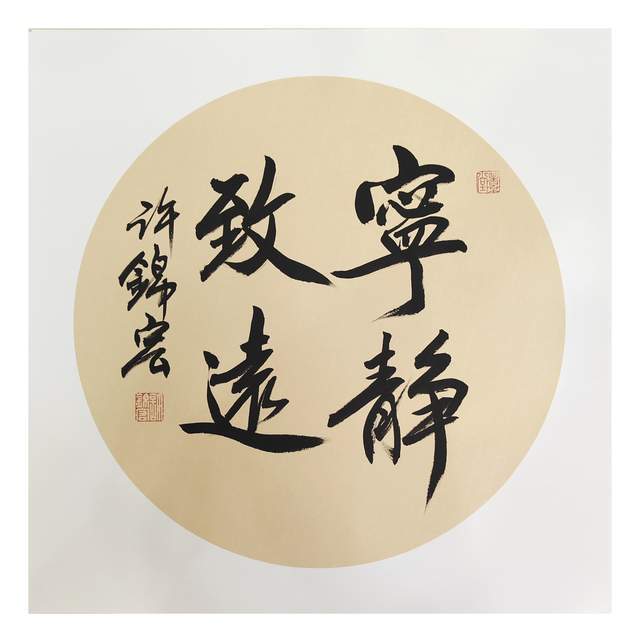 寧靜
致遠
许錦宏